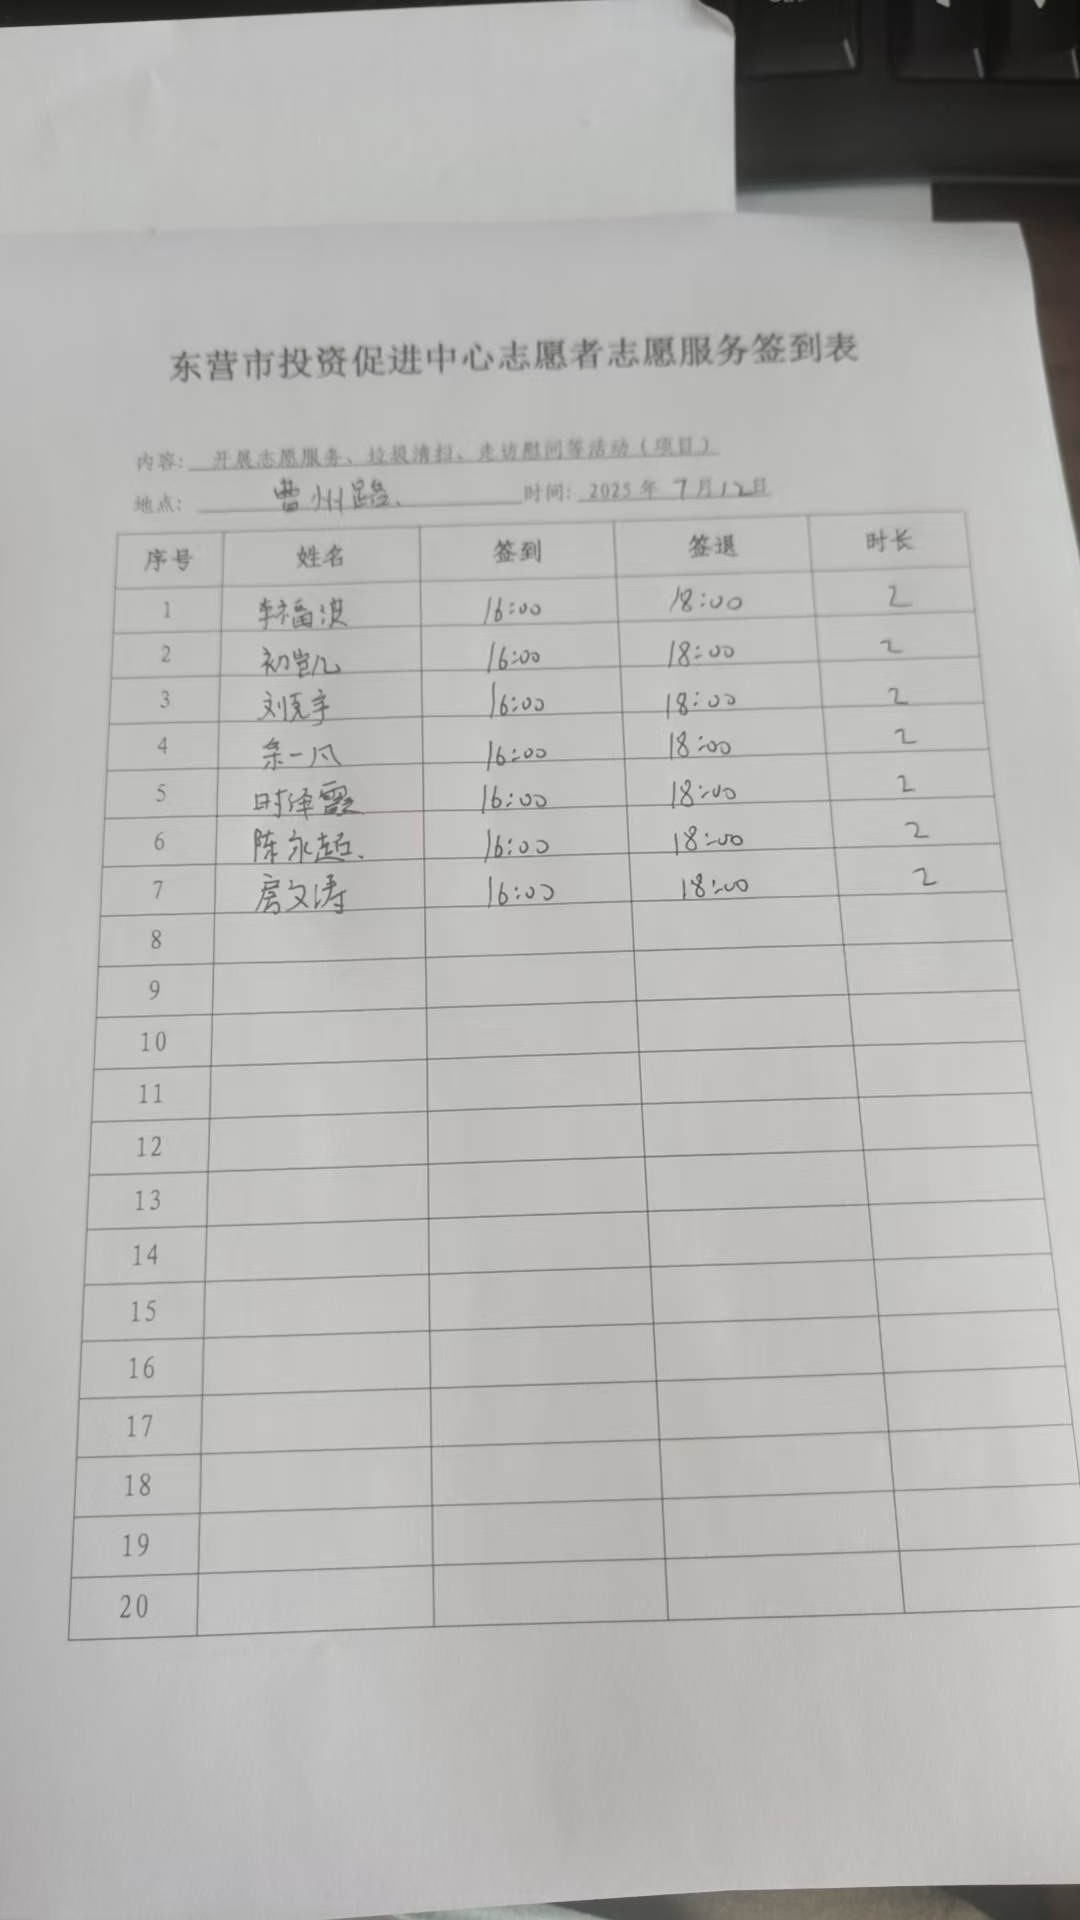 东营市投资促进中心志愿者志愿服务签到表
内容: 开展志愿服务、垃圾清扫、走访慰问等活动（项目）
地点: 曹州路. 时间: 2025年 7月12日
序号 姓名 签到 签退 时长
1 李福波 16:00 18:00 2
2 初凯 16:00 18:00 2
3 刘克宇 16:00 18:00 2
4 一凡 16:00 18:00 2
5 时泽霞 16:00 18:00 2
6 陈永超. 16:00 18:00 2
7 房文涛 16:00 18:00 2
8
9
10
11
12
13
14
15
16
17
18
19
20